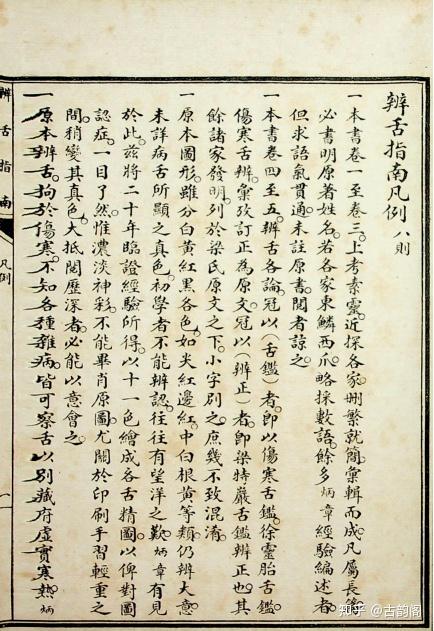 辨舌指南凡例 八則
一本書卷一至卷三上考素靈近探各家刪繁就簡彙輯而成凡屬長篇
必書明原著姓名若各家東鱗西爪略採數語餘多炳章經驗編述者
但求語氣貫通未註原書閱者諒之
一本書卷四至五辨舌各論冠以(舌鑑)者卽以傷寒舌鑑徐靈胎舌鑑
傷寒舌辨彙攷訂正為原文冠以(辨正)者卽梁特巖舌鑑辨正也其
餘諸家發明列於梁氏原文之下小字別之庶幾不致混淆
一原本圖形雖分白黃紅黑各色如尖紅邊紅中白根黃等類仍辨大意
未詳病舌所顯之真色初學者不能辨認往往有望洋之歎炳章有見
於此茲將二十年臨證經驗所得以十一色繪成各舌精圖以俾對圖
認症一目了然惟濃淡神彩不能畢肖原圖尤關於印刷手習輕重之
間稍變其真色大抵閱歷深者必能以意會之
一原本辨舌拘於傷寒不知各種雜病皆可察舌以別藏府虛實寒熱炳
辨舌指南
凡例
一
知乎 @古韵阁